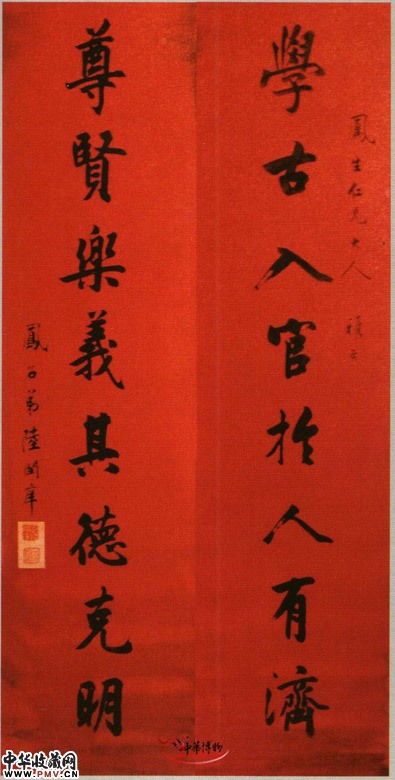 學古入官於人有濟
鳳生仁兄大人
尊賢樂義其德克明
弟陸潤庠
中華博物
中华收藏网
WWW.PMV.CN